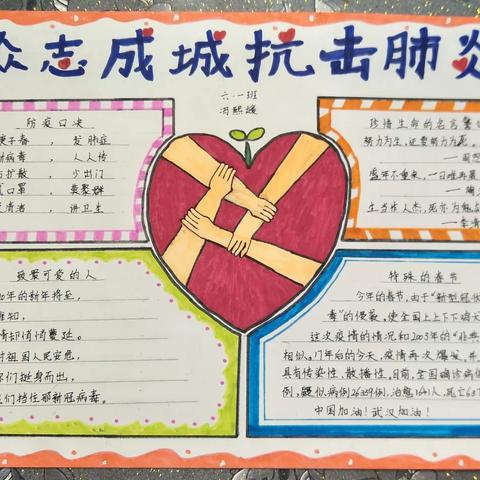 众志成城抗击肺炎
六·一班
防疫口决
庚子春，起肺症
病毒，人人传
防扩散，少出门
口罩，莫聚群
清洁，讲卫生
珍惜生命的名言警句
努力为生，还要努力为死。
盛年不重来，一日难再晨
生当作人杰，死亦为鬼雄
致最可爱的人
20年的新年将至，
知，
情却悄悄蔓延。
对祖国人民安危，
你们挺身而出，
们挡住那新冠病毒。
特殊的春节
今年的春节，由于"新型冠状
毒"的侵袭，使全国上上下下
这次疫情的情况和2003年的"非典
相似。17年后的今天，疫情再次爆发，并
具有传染性，散播性。目前，全国确诊病
例，疑似病例26359例，治愈1641人，死亡637
中国加油！武汉加油！